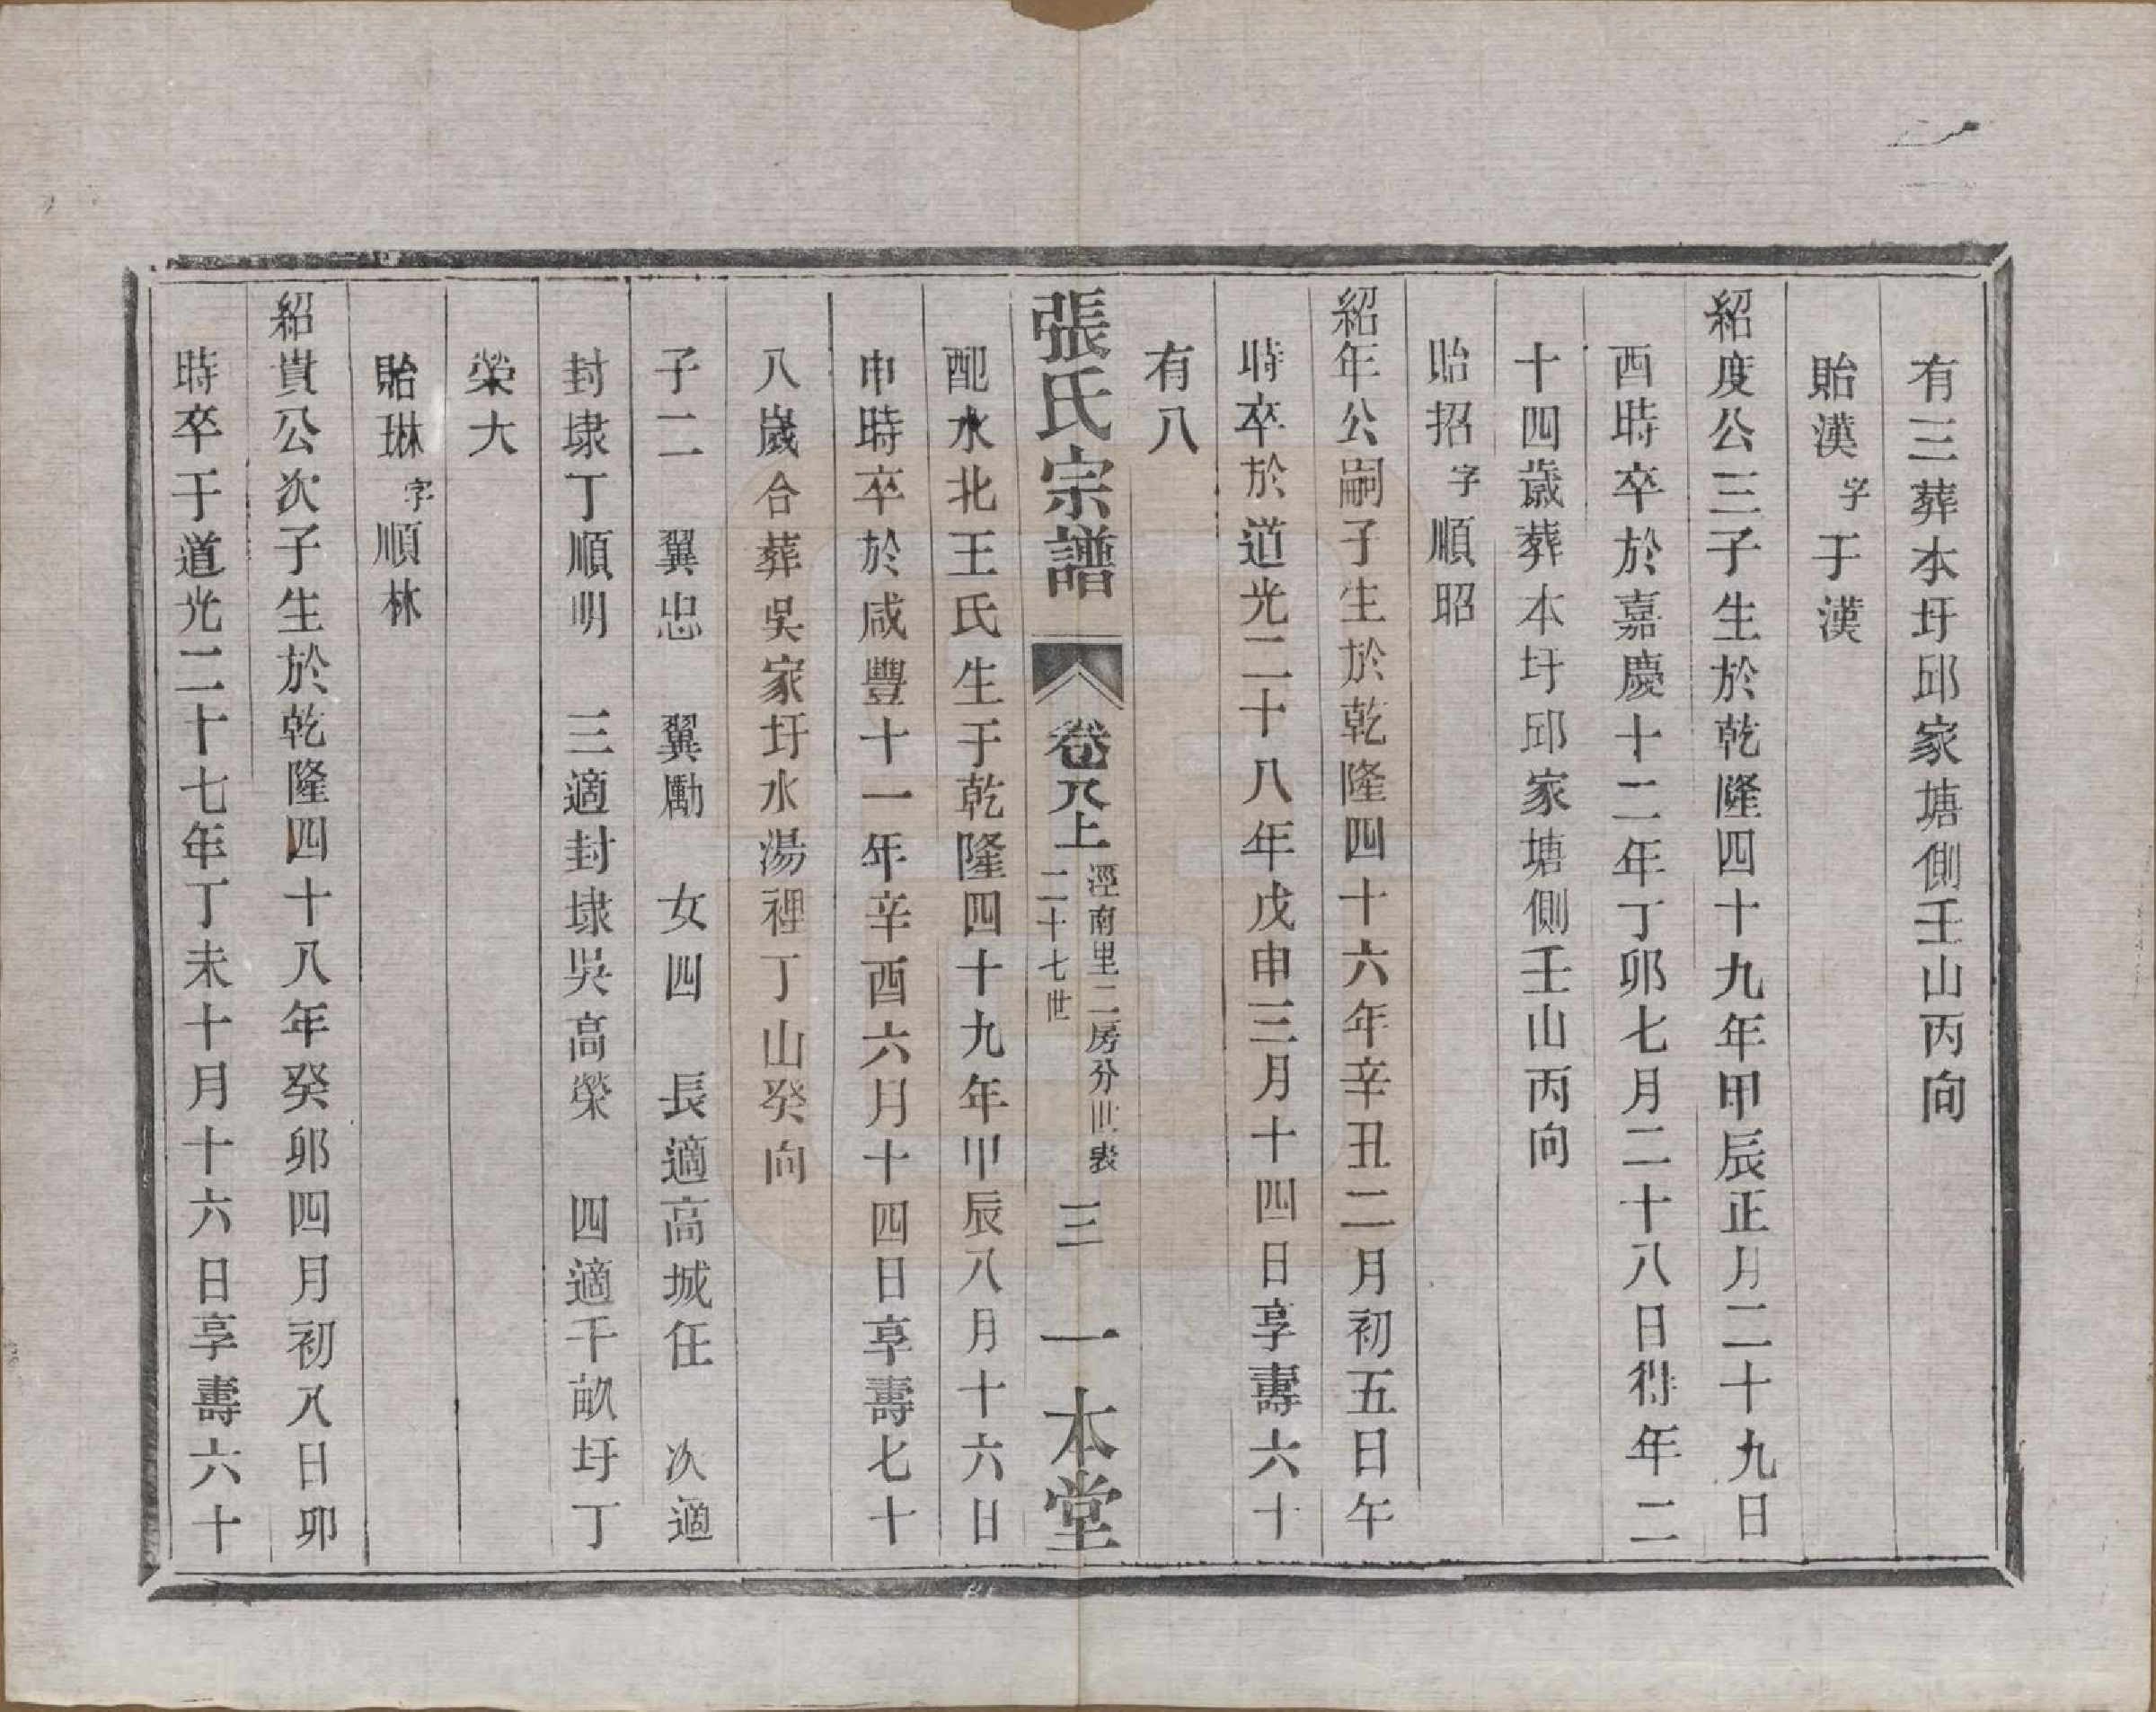 有三葬本圩邱家塘側壬山丙向
貽漢字于漢
紹度公三子生於乾隆四十九年甲辰正月二十九日
酉時卒於嘉慶十二年丁卯七月二十八日得年二
十四歲葬本圩邱家塘側壬山丙向
貽招字順昭
紹年公嗣子生於乾隆四十六年辛丑二月初五日午
時卒於道光二十八年戊申三月十四日享壽六十
有八
張氏宗譜
卷八上
涇南里二房分世表
二十七世
三
一本堂
配水北王氏生于乾隆四十九年甲辰八月十六日
申時卒於咸豐十一年辛酉六月十四日享壽七十
八歲合葬吳家圩水湯裡丁山癸向
子二 翼忠 翼勵 女四 長適高城任 次適
封埭丁順明 三適封埭吳高榮 四適千畝圩丁
榮大
貽琳字順林
紹貴公次子生於乾隆四十八年癸卯四月初八日卯
時卒于道光二十七年丁未十月十六日享壽六十